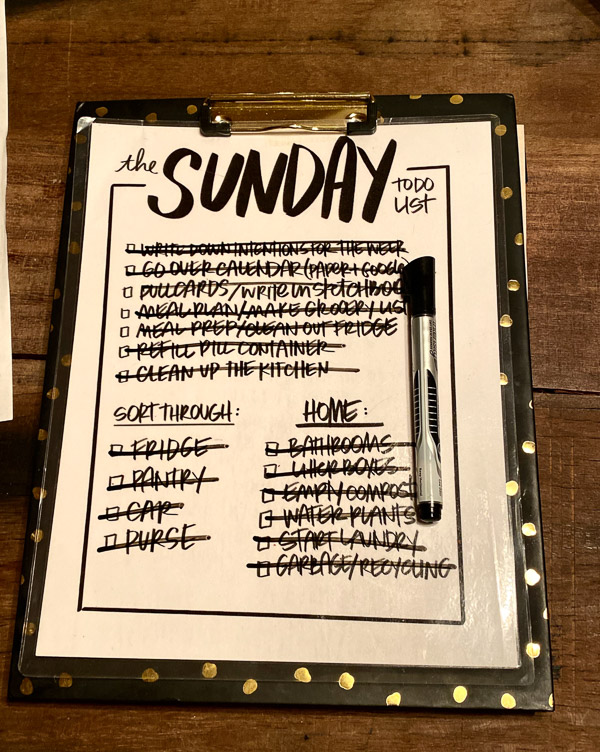 the SUNDAY TODO LIST
WRITE DOWN INTENTIONS FOR THE WEEK
GO OVER CALENDAR (PAPER + GOOGLE
PULL CARDS / WRITE IN SKETCHBOOK
MEAL PLAN / MAKE GROCERY LIST
MEAL PREP / CLEAN OUT FRIDGE
REFILL PILL CONTAINER
CLEAN UP THE KITCHEN
SORT THROUGH:
FRIDGE
PANTRY
CAR
PURSE
HOME:
BATHROOMS
LITTER BOXES
EMPTY COMPOST
WATER PLANTS
START LAUNDRY
GARBAGE/RECYCLING